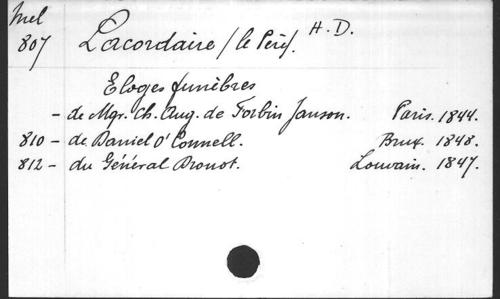 Mel
807 Lacordaire / le Père/. H. D.
Eloges funèbres
- de Mgr. Ch. Aug. de Forbin Janson. Paris. 1844.
810 - de Daniel O'Connell. Brux. 1848.
812 - du Général Drouot. Louvain. 1847.